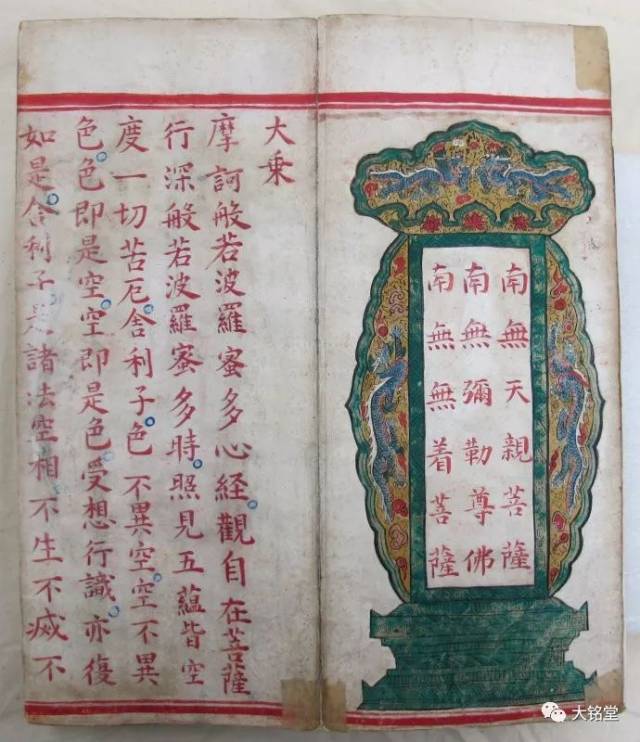 南無天親菩薩
南無彌勒尊佛
南無無着菩薩
大乘
摩訶般若波羅蜜多心經。觀自在菩薩
行深般若波羅蜜多時。照見五蘊皆空
度一切苦厄。舍利子。色不異空。空不異
色。色即是空。空即是色。受想行識。亦復
如是。舍利子。是諸法空相。不生不滅不
大铭堂